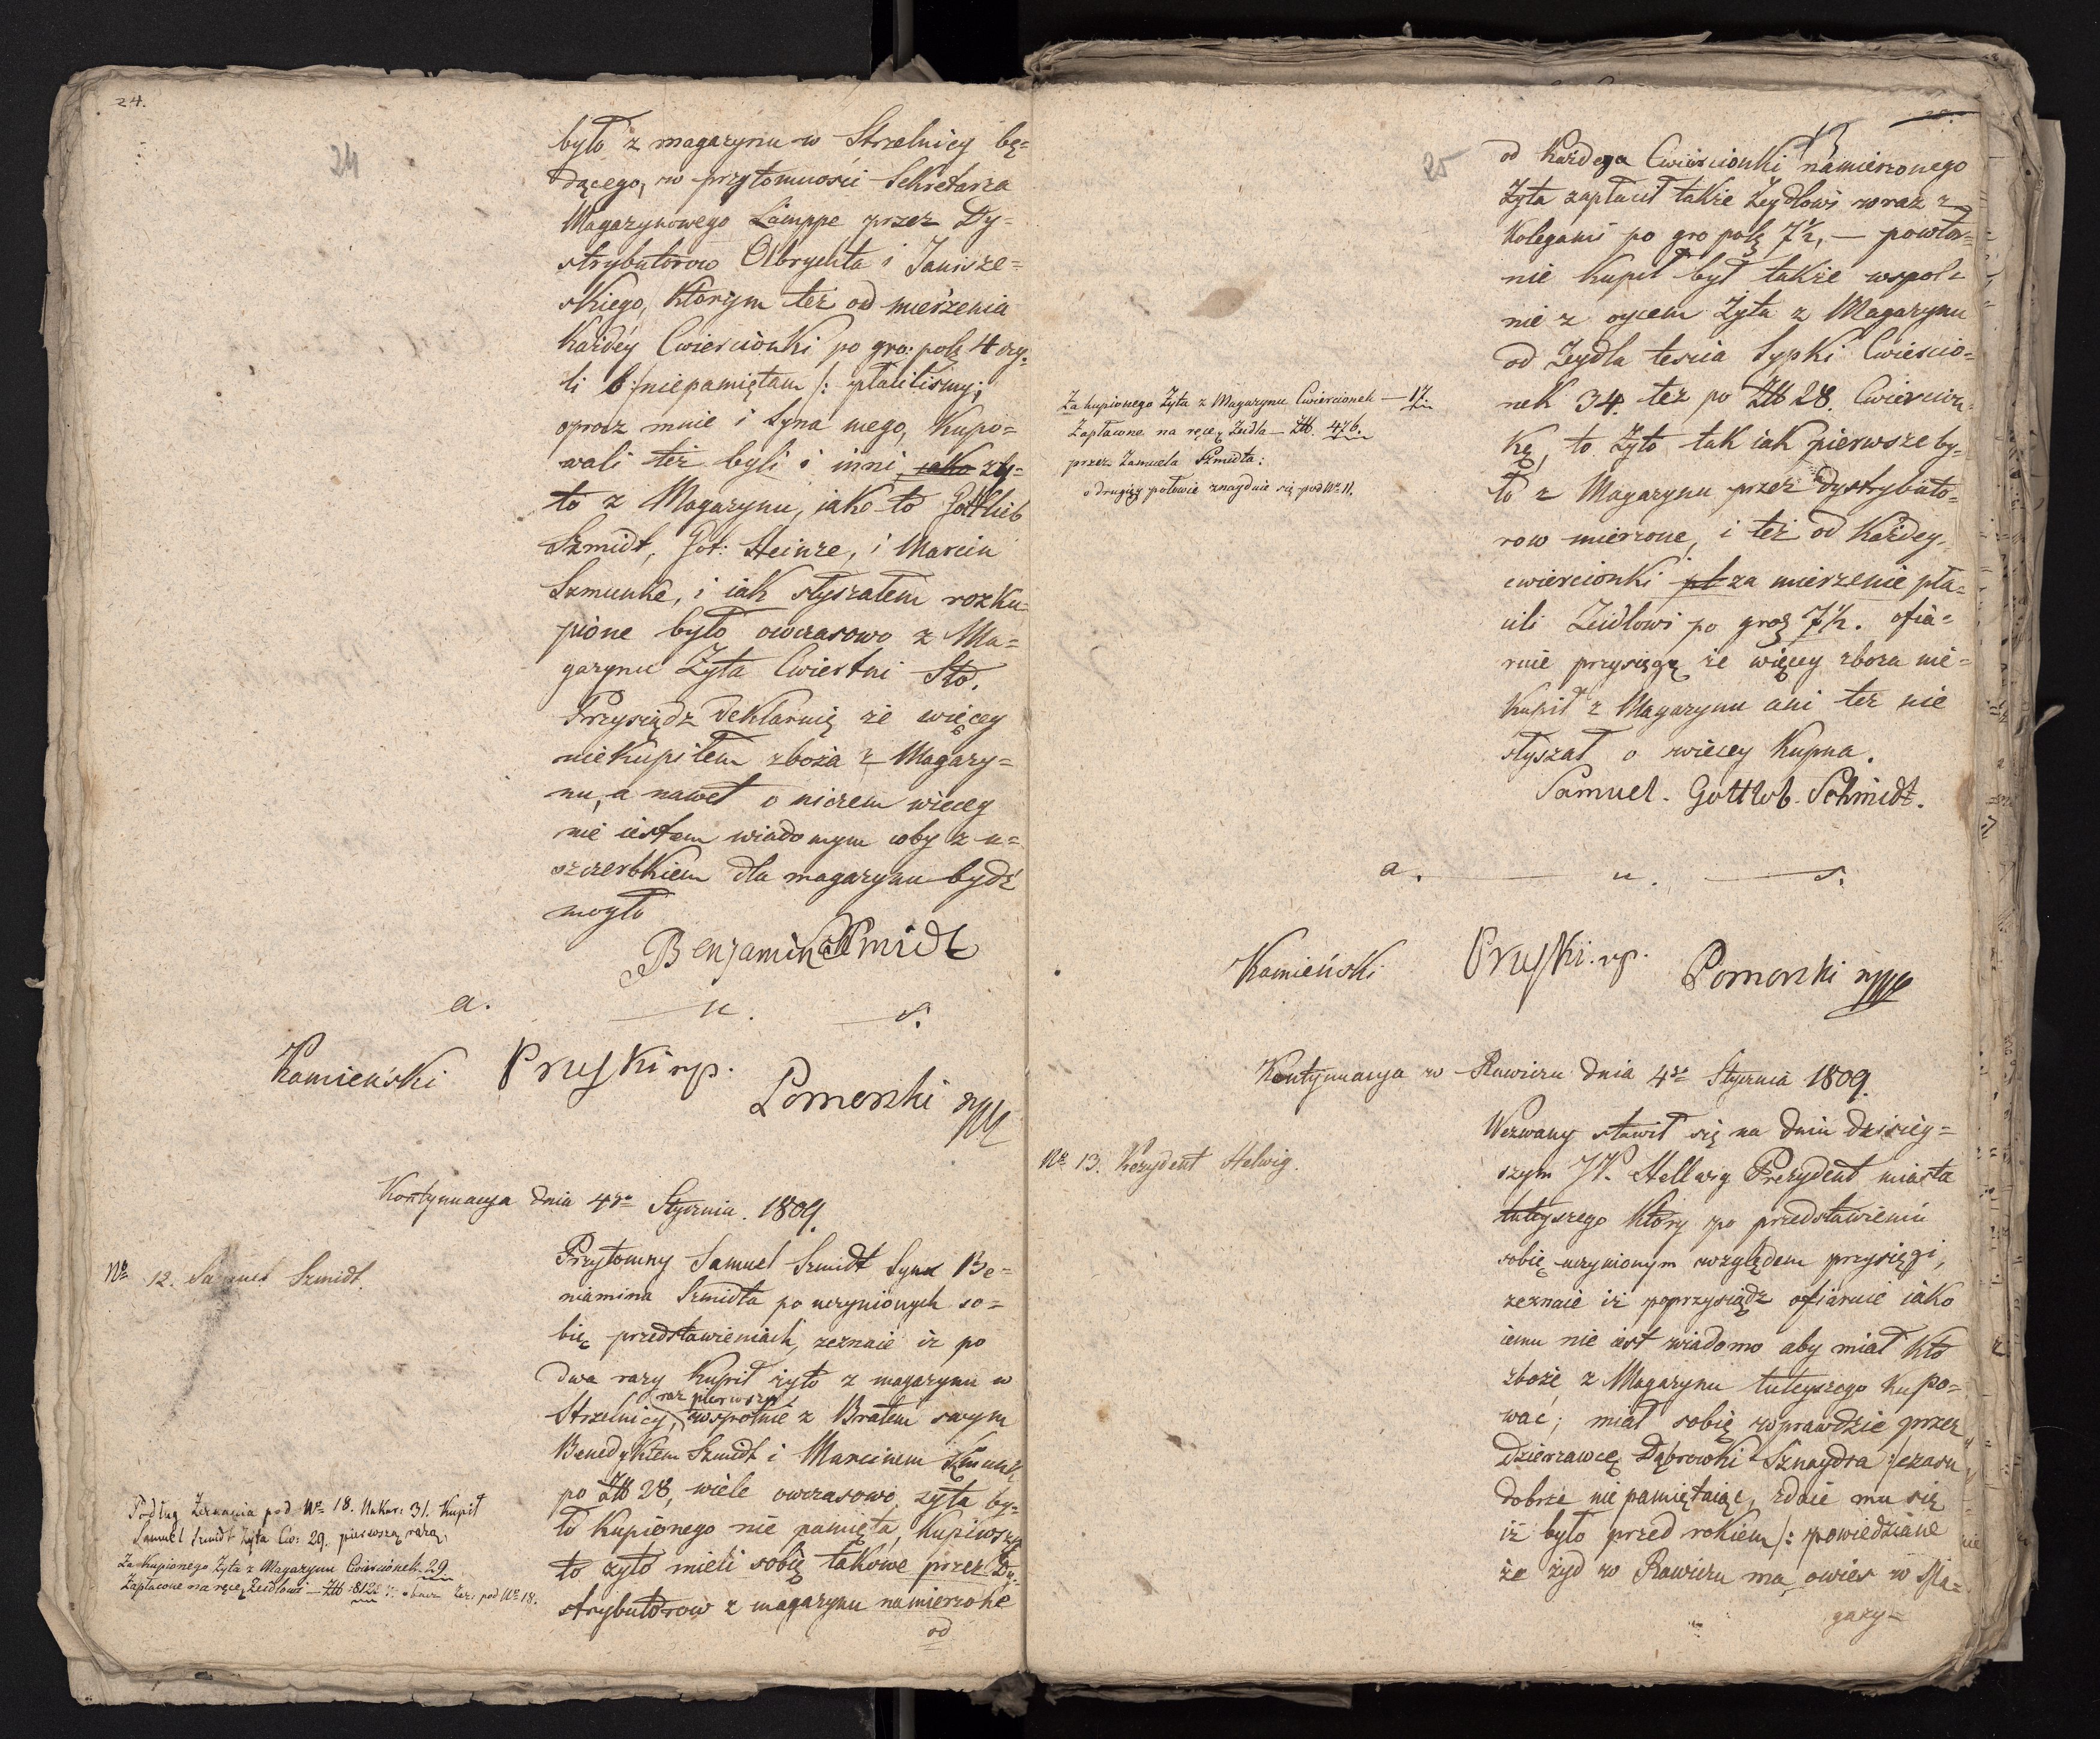 24.
24
było z magazynu w Strzelnicy bę=
dącego, w przytomności Sekretarza
Magazynowego Lamppe przez Dy=
strybutorow Olbrychta i Janisze=
skiego, ktorym też od mierzenia
każdey Cwiercionki po gro: polz 4 czy=
li 6 /: niepamiętam /: płaciliśmy;
oprocz mnie i Syna mego, kupo=
wali też byli i inni jako zby=
to z Magazynu, jako to Gottlieb
Szmidt, Got: Heinze, i Marcin
Szmunke, i iak słyszałem rozku=
pione było owczasowo z Ma=
gazynu Żyta Cwiertni Sto.
Przysiądz deklaruię że więcey
niekupiłem zboża z Magazy=
nu, a nawet o niczem więcey
nie iestem wiadomym coby z u=
szczerbkiem dla magazynu bydź
mogło
Benjamin Schmidt
a. u. s.
Kamieński Pruski mp. Pomorski mpp
Kontynuacya dnia 4go Stycznia. 1809.
Nro 12. Samuel Szmidt.
Przytomny Samuel Szmidt Syn Be=
niamina Szmidta po uczynionych so=
bię przedstawieniach, zeznaie iz po
dwa razy kupił żyto z magazynu w
raz pierwszy
Strzelnicy, wspolnie z Bratem swym
Benedyktem Szmidt i Marcinem Szmunk
po Ztt 28, wiele owczasowo żyta by=
ło kupionego nie pamięta, kupiwszy
to żyto mieli sobię takowe przez Dy=
strybutorow z magazynu namierzone
od
Podług Zeznania pod Nro 18. Na kar: 31. Kupił
Samuel Szmidt Żyta Cw: 29. pierwszą razą,
Za kupionego Żyta z Magazynu Cwiercionek 29
Zapłacone na ręcę Zeidlowi — Ztt 812 Zez: pod Nro 18.
25
od każdego Cwiercionki namierzonego
Żyta zapłacił także Zeydlowi wraz z
Kolegami po gro polz 7½, — powtor=
nie kupił był także wspol=
nie z oycem Żyta z Magazynu
od Zeydla teścia Sypki Cwiercio=
nek 34. też po Ztt 28. Cwiercion=
kę, to żyto tak iak pierwsze by=
ło z Magazynu przez dystrybuto=
row mierzone, i też od każdey
cwiercionki pł za mierzenie pła=
cili Zeidlowi po grosz 7½. ofia=
ruie przysięgę że więcey zboza nie=
kupił z Magazynu ani też nie
słyszał o więcey kupna.
Samuel. Gottlob. Schmidt.
Za kupionego Żyta z Magazynu Cwiercionek — 17.
Zapłacone na ręcę Zeidla — Ztt. 476.
przez Samuela Szmidta:
o drugięy połowie znayduie się pod Nro 11.
a. u. s.
Kamieński Pruski. mp. Pomorski mpp
Kontynuacya w Rawiczu dnia 4go Stycznia 1809.
Nro 13. Prezydent Helwig.
Wezwany stawił się na dniu dzisiey=
szym JP. Hellwig Prezydent miasta
tuteyszego który po przedstawieniu
sobię uczynionym względem przysięgi,
zeznaie iż poprzysiądz ofiaruie iako
iemu nie iest wiadomo aby miał kto
zboże z Magazynu tuteyszego kupo=
wać; miał sobię wprawdzie przez
Dzierzawcę Dąbrowki Sznaydra /: czasu
dobrze nie pamiętaiąc, zdaie mu się
iż było przed rokiem /: powiedziane
że żyd w Rawiczu ma owies w Ma=
gazy=